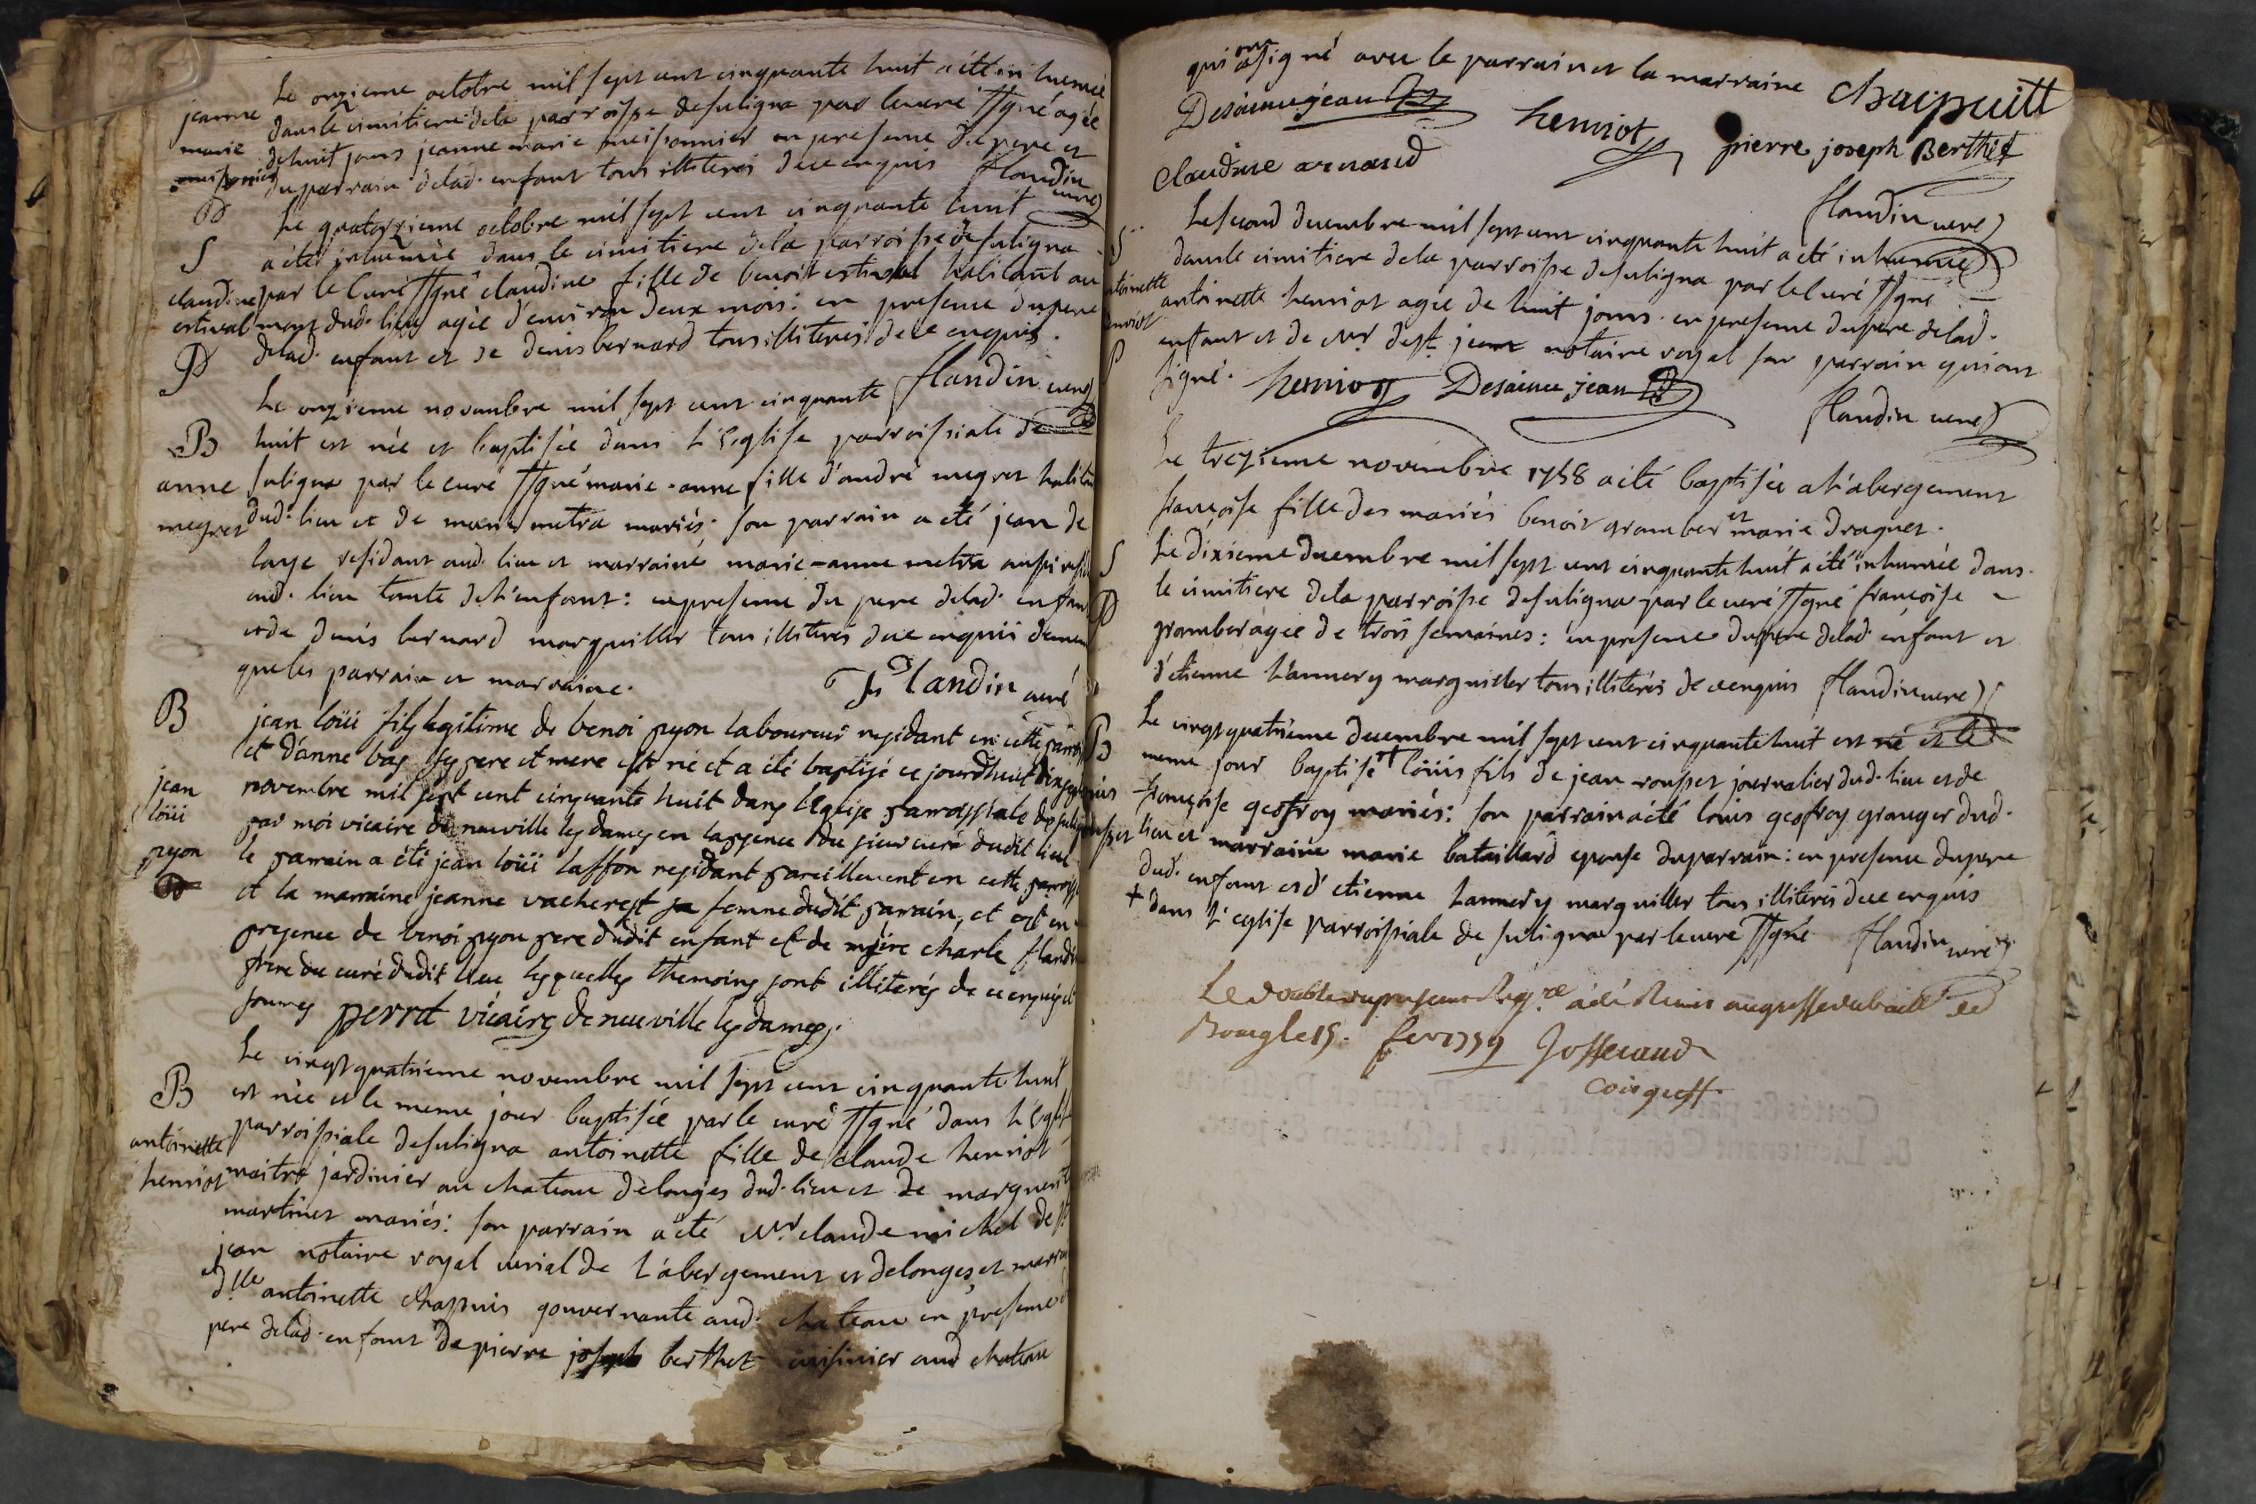 Le onzieme octobre mil sept cent cinquante huit a été inhumée
jeanne marie
dans le cimitiere dela parroisse desuligna par le curé ssgné agée
dehuit jours jeanne marie meissonnier en presence du pere et
du parrain delad. enfant tous illiterés dece enquis flandin curé
S
claudine estival
Le quatorzieme octobre mil sept cent cinquante huit
a été inhumée dans le cimitiere dela parroisse de suligna
par le Curé ssgné claudine fille de benoit estival habitant au
mont dud. lieu agée d'environ deux mois: en presence du pere
delad. enfant et de denis bernard tous illiterés dece enquis.
flandin curé
B
anne megret
Le onzieme novembre mil sept cent cinquante
huit est née et baptisée dans L'Eglise parroissiale de
suligna par le curé ssgné marie-anne fille d'andré megret
dud. lieu et de marie metra mariés; son parrain a été jean de
large residant aud. lieu et marraine marie-anne metra aussi
aud. lieu tante deL'enfant: en presence du pere delad. enfant
et de denis bernard marguillier tous illiterés dece enquis
que les parrain et marraine.
flandin curé
B
jean loüi pyon
jean loüi fils legitime de benoi pyon laboureur residant en cette
et d'anne bas ses pere et mere est né et a été baptisé ce jourdhuit
novembre mil sept cent cinquante huit dans l'eglise parroissiale de
par moi vicaire de neuville les dames en l'absence du sieur curé dudit lieu
le parrain a été jean loüi laffon residant pareillement en cette
et la marraine jeanne vacherest sa femme dudit parrain, et est en
presence de benoi pyon pere dudit enfant et de charle
frere du curé dudit lieu lesquelles themoins sont illiterés de ce enquis et
sommés perrot vicaire de neuville les dames.
B
antoinette henriot
Le vingtquatrieme novembre mil sept cent cinquante huit
est née et le meme jour baptisée par le curé ssgné dans L'Eglise
parroissiale desuligna antoinette fille de claude henriot
maitre jardinier au chateau delonges dud. lieu et de
martinet mariés: son parrain a été Mr. claude michel de
jean notaire royal curial de L'abergement et delonges et
dlle antoinette chapuis gouvernante aud. chateau en presence
pere delad. enfant de pierre joseph berthet cuisinier aud chateau
qui ont signé avec le parrain et la marraine
Desaintjean henriot pierre joseph Berthet
Claudine arnaud
flandin curé
S
antoinette henriot
Le second decembre mil sept cent cinquante huit a été inhumée
dans le cimitiere dela parroisse desuligna par le curé ssgné
antoinette henriot agée de huit jours. en presence du pere delad.
enfant et de Mr. dest. jean notaire royal son parrain qui ont
signé. henriot Desaint jean
flandin curé
Le trezieme novembre 1758 a été baptisée a L'abergement
françoise fille des mariés benoit gramber et marie draguet.
S
Le dixieme decembre mil sept cent cinquante huit a été inhumée dans
le cimitiere dela parroisse desuligna par le curé ssgné françoise
gramber agée de trois semaines: en presence du pere delad. enfant et
d'etienne Lannery marguiller tous illiterés de ce enquis flandin curé
B
Le vingtquatrieme decembre mil sept cent cinquante huit est né et le
meme jour baptisé + loüis fils de jean rousset journalier dud. lieu et de
françoise geofroy mariés: son parrain a été louis geofroy granger dud.
lieu et marraine marie bataillard epouse du parrain: en presence du pere
dud. enfant et d'etienne Lannery marguiller tous illiterés dece enquis
+ dans L'eglise parroissiale de suligna par le curé ssgné flandin curé
Le double du present Regre. a été Remis au greffe du baill. de
Bourg le 15. fev 1759 Josserand